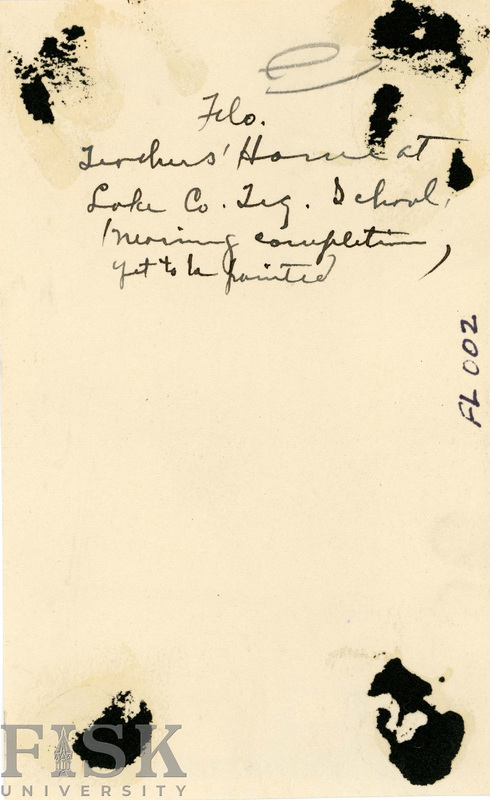 Flo.
Teachers' Home at
Lake Co. Trg. School,
(nearing completion,
yet to be painted)
FL 002
FISK
UNIVERSITY